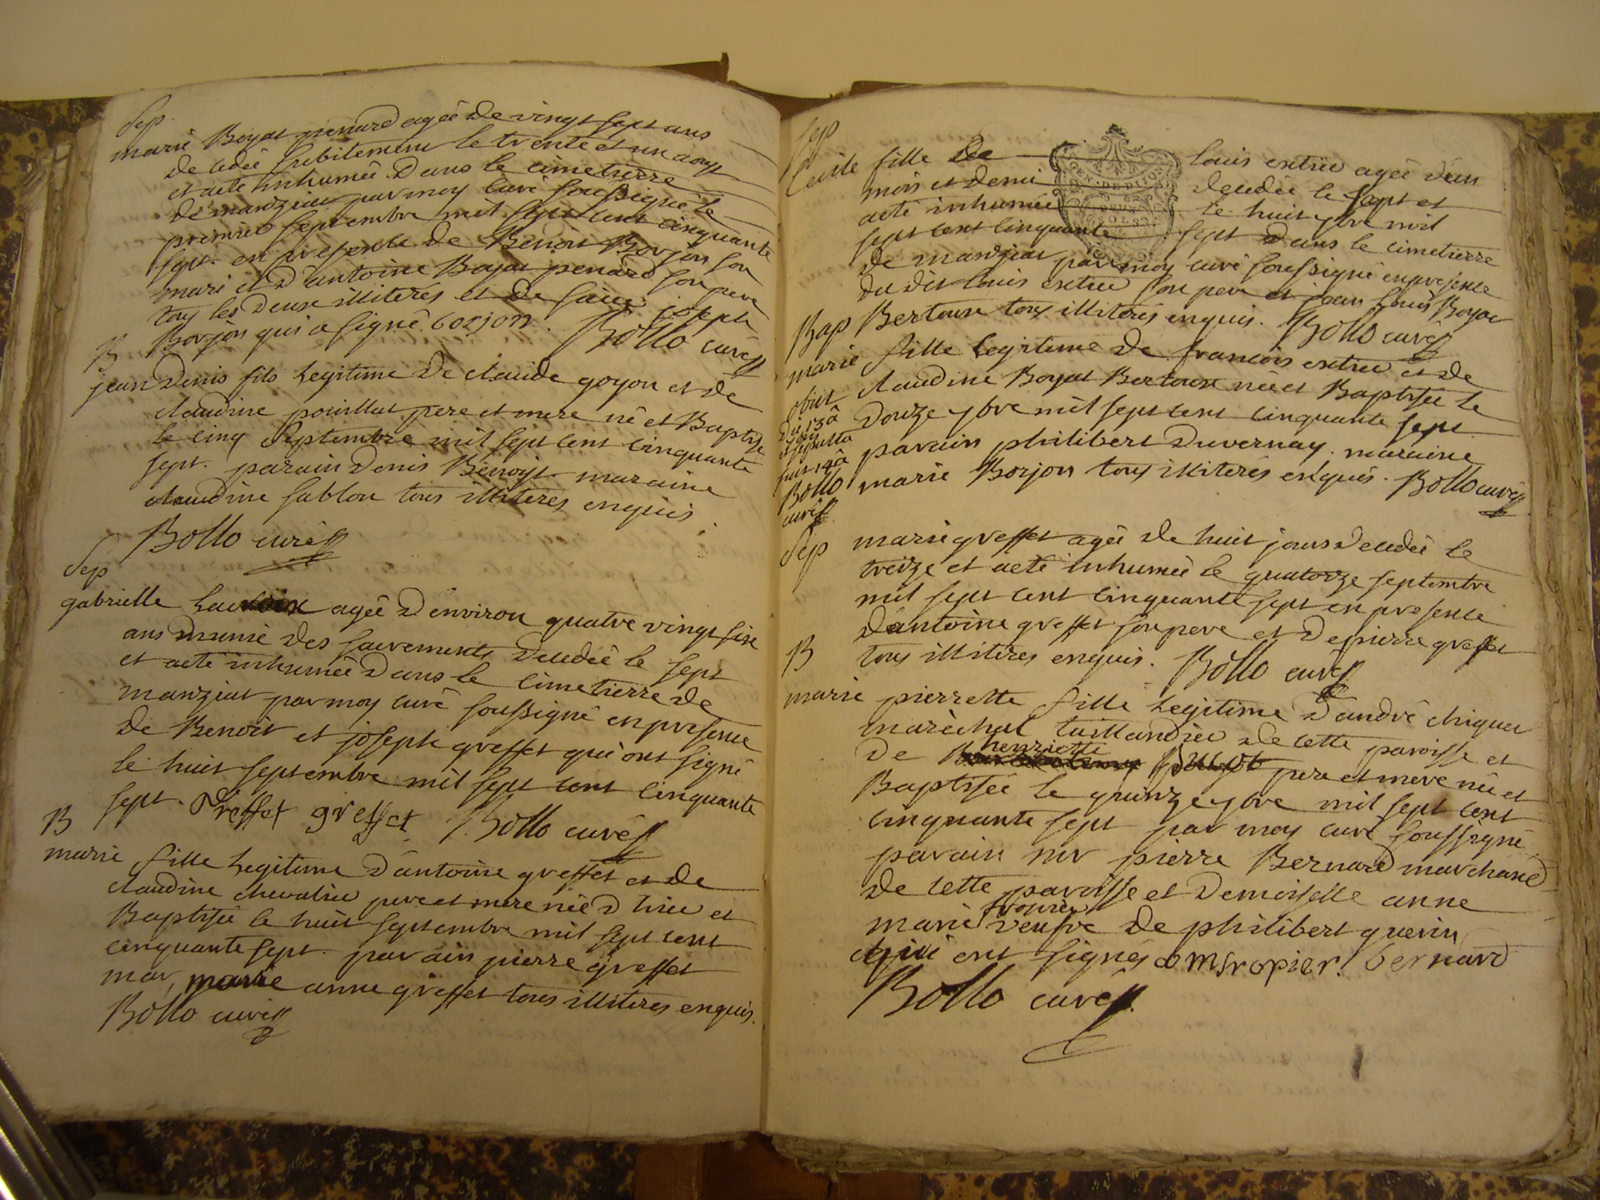 Sep.
marie Boyat penard agée de vingt sept ans
decedée subitement le trente et un aoust
et a eté inhumée dans le cimetierre
de manziat par moy curé soussigné le
premier septembre mil sept cent cinquante
sept. en presence de Benoit Borjon son
mari et d'antoine Boyat penard son pere
tous les deux illiterés et de joseph
Borjon qui a signé. borjon. Bollo curé
B
jean Denis fils legitime de claude goyon et de
claudine pouillat pere et mere né et Baptisé
le cinq septembre mil sept cent cinquante
sept. parain denis Benoist maraine
claudine sablon tous illiteres enquis.
Bollo curé
Sep
gabrielle Lacroix agée d'environ quatre vingt six
ans munie des sacrements decedée le sept
et a eté inhumée dans le cimetierre de
manziat par moy curé soussigné en presence
de Benoit et joseph greffet qui ont signé
le huit septembre mil sept cent cinquante
sept. greffet greffet Bollo curé
B
marie fille legitime d'antoine greffet et de
claudine chevalier pere et mere née d'hier et
Baptisée le huit septembre mil sept cent
cinquante sept. parain pierre greffet
mar, marie anne greffet tous illiteres enquis.
Bollo curé
Sep
fille de louis extrier agée d'un
mois et demi decedée le sept et
a eté inhumée le huit 7bre mil
sept cent cinquante sept dans le cimetierre
de manziat par moy curé soussigné en presence
du dit louis extrier son pere et jean louis Boyat
Bertoux tous illiterés enquis. Bollo curé
Bap
marie fille legitime de francois extrier et de
claudine Boyat Bertoux née et Baptisée le
douze 7bre mil sept cent cinquante sept.
parain philibert duvernay. maraine
marie Borjon tous illiterés enquis. Bollo curé
obiit
die 13a
et sepulta
fuit 14a
Bollo
curé
Sep
marie greffet agée de huit jours decedée le
treize et a eté inhumée le quatorze septembre
mil sept cent cinquante sept en presence
d'antoine greffet son pere et de pierre greffet
tous illiteres enquis. Bollo curé
B
marie pierrette fille legitime d'andré chiquet
maréchal taillandier de cette paroisse et
de henriette pere et mere née et
Baptisée le quinze 7bre mil sept cent
cinquante sept par moy curé soussigné
parain mr pierre Bernard marchand
de cette paroisse et demoiselle anne
marie veufve de philibert guerin
qui ont signés amsropier. bernard
Bollo curé